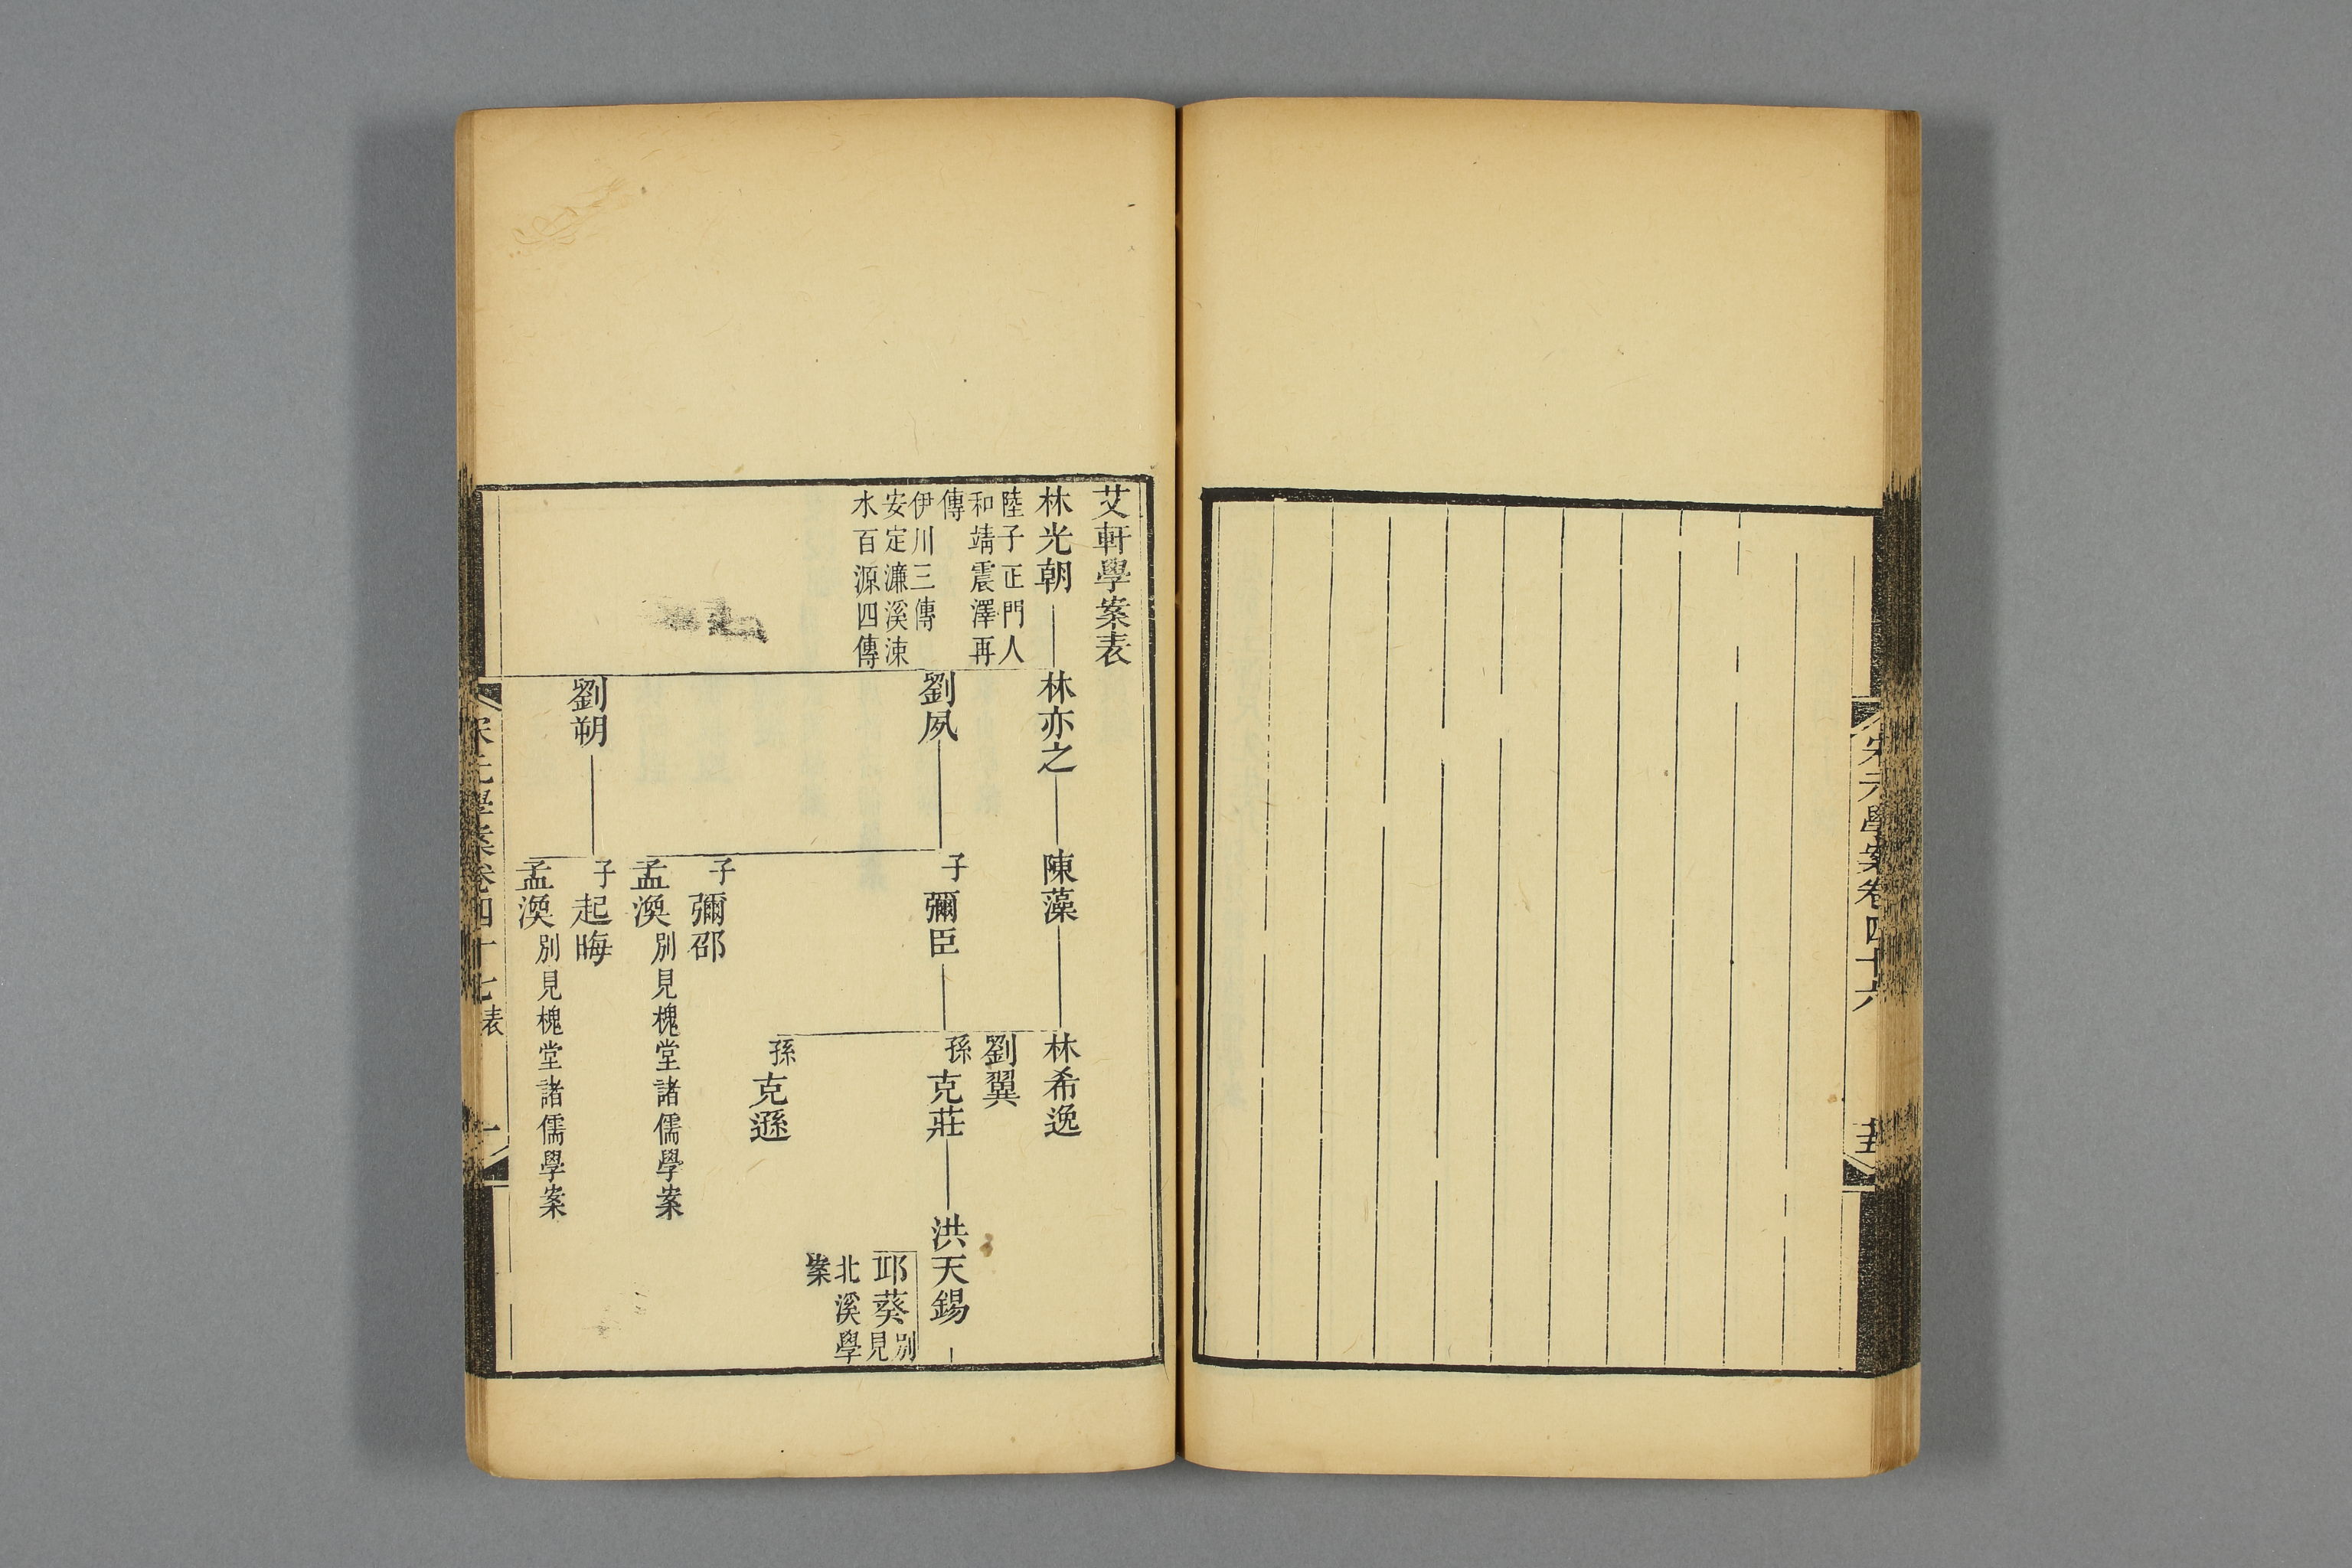 宋元學案卷四十六
艾軒學案表
林光朝
陸子正門人
和靖震澤再
傳
伊川三傳
安定濂溪涑
水百源四傳
林亦之
陳藻
林希逸
劉翼
劉夙
子彌臣
孫克莊
洪天錫
邱葵別見
北溪學
案
孫克遜
子彌邵
孟渙別見槐堂諸儒學案
劉朔
子起晦
孟渙別見槐堂諸儒學案
宋元學案卷四十七表
一